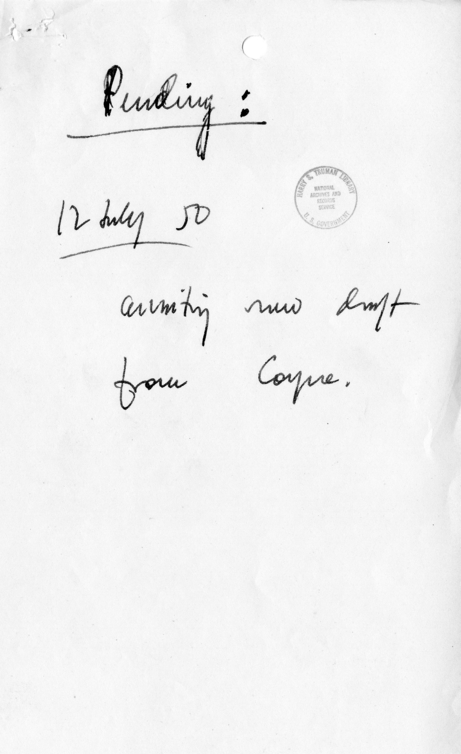 Pending:
HARRY S. TRUMAN LIBRARY
NATIONAL
ARCHIVES AND
RECORDS
SERVICE
U.S. GOVERNMENT
12 July 50
awaiting new draft
from Coyne.